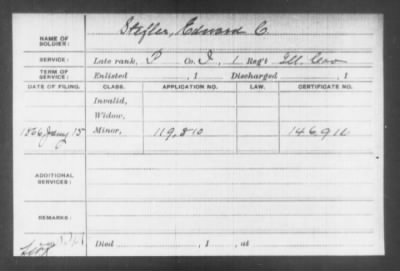 NAME OF SOLDIER: Stefler, Edward C.
SERVICE: Late rank, P Co. I, 1 Reg't Ill. Cav
TERM OF SERVICE: Enlisted , 1 Discharged , 1
DATE OF FILING. CLASS. APPLICATION NO. LAW. CERTIFICATE NO.
Invalid,
Widow,
1866 Jany 15 Minor, 119,810 146,916
ADDITIONAL SERVICES:
REMARKS:
Died , 1 , at